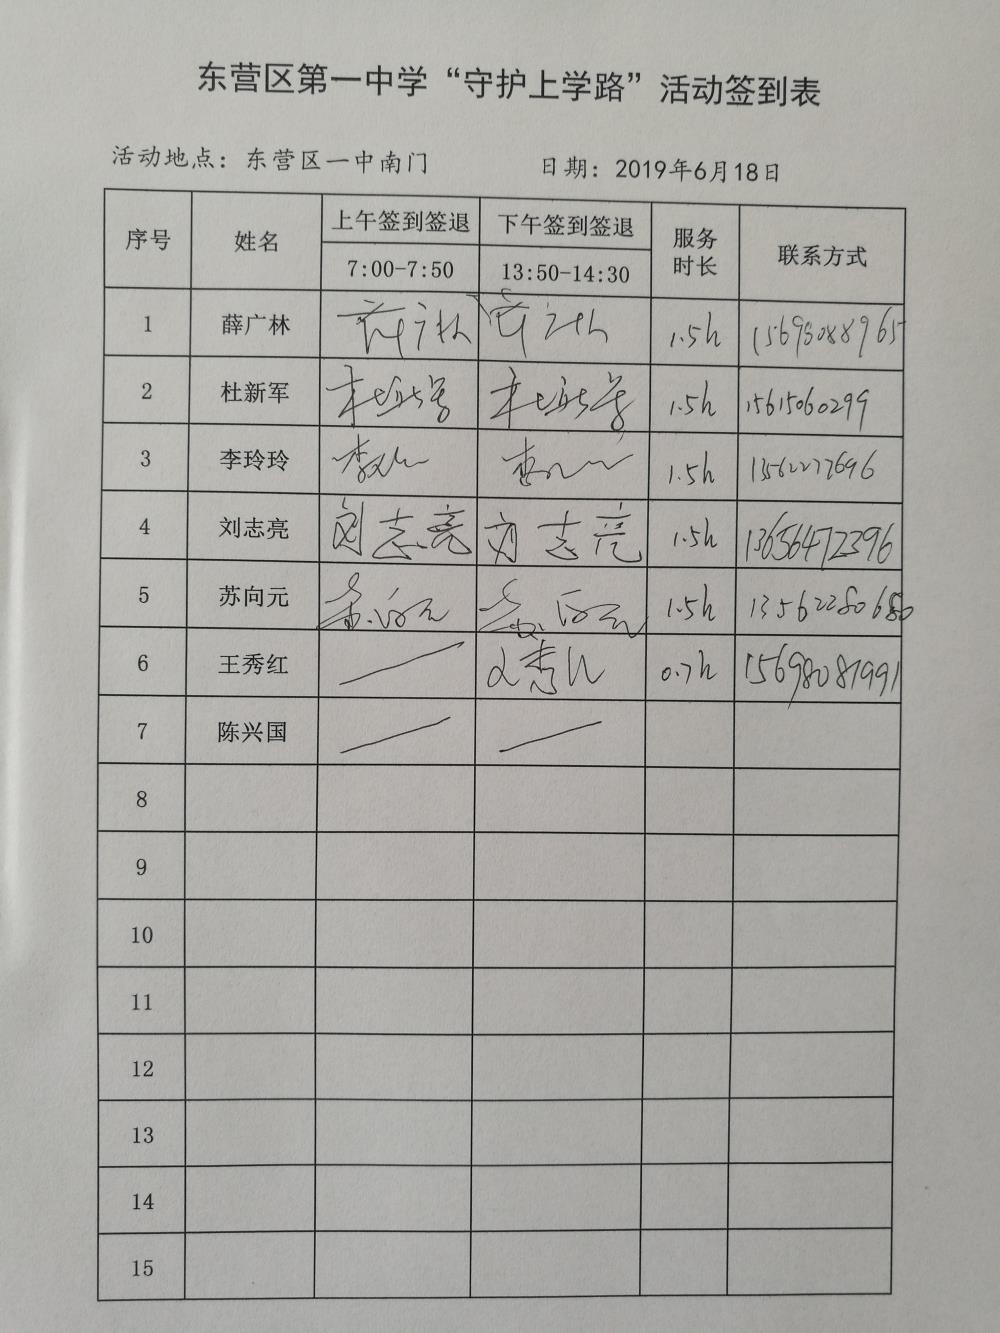 东营区第一中学“守护上学路”活动签到表
活动地点：东营区一中南门 日期：2019年6月18日
序号 姓名 上午签到签退 下午签到签退 服务时长 联系方式
7:00-7:50 13:50-14:30
1 薛广林 薛广林 薛广林 1.5h 15698088965
2 杜新军 杜新军 杜新军 1.5h 15615060299
3 李玲玲 1.5h 13562277696
4 刘志亮 刘志亮 刘志亮 1.5h 13656472396
5 苏向元 苏向元 苏向元 1.5h
6 王秀红 王秀红 0.7h 15698081991
7 陈兴国
8
9
10
11
12
13
14
15